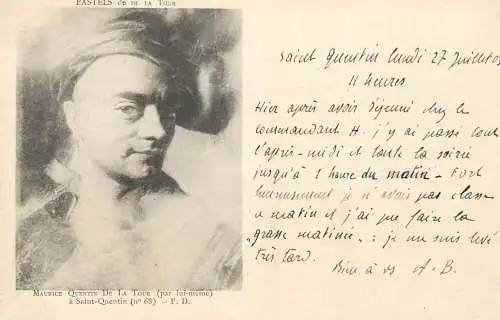 PASTELS de DE LA TOUR
MAURICE QUENTIN DE LA TOUR (par lui-même)
à Saint-Quentin (n° 68) — P. D.
Saint Quentin lundi 27 Juillet
11 heures
Hier après avoir déjeuné chez le
commandant H. j'y ai passé tout
l'après-midi et toute la soirée
jusqu'à 1 heure du matin - Fort
heureusement je n'avais pas classe
ce matin et j'ai pu faire la
"grasse matinée": je me suis levé
très tard.
Bien à vs A. B.